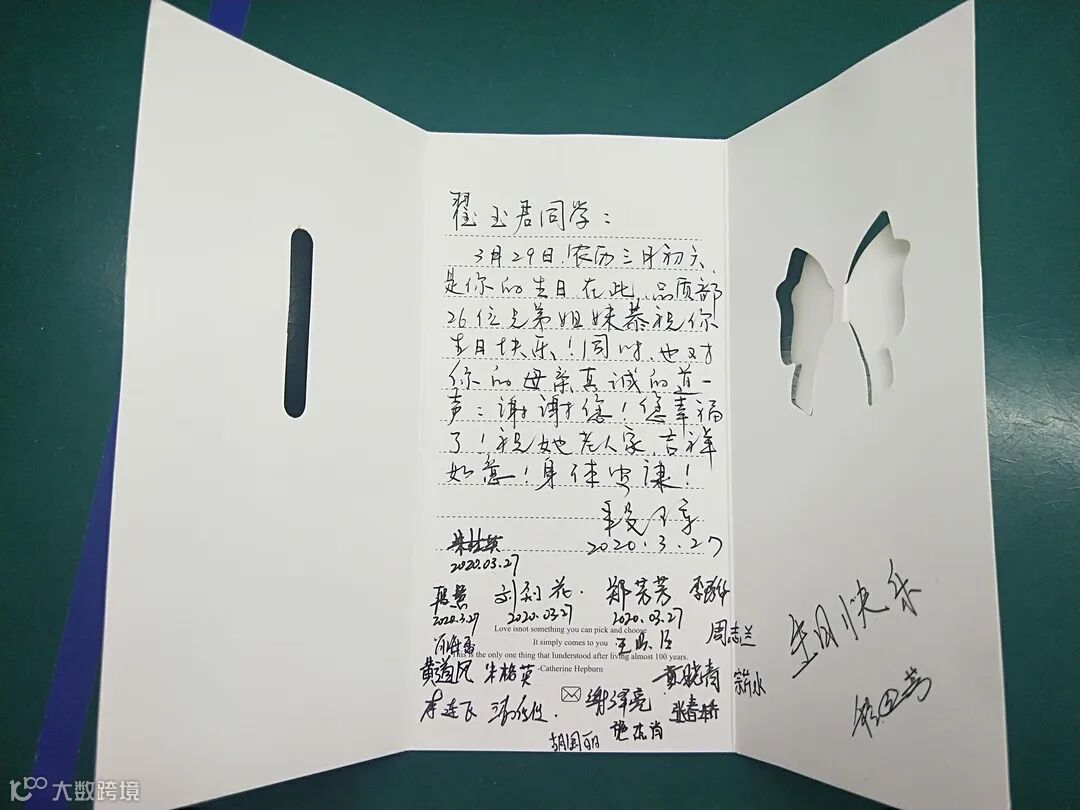 翟玉君同学：
3月29日.农历三月初六
是你的生日在此,品质部
26位兄弟姐妹恭祝你
生日快乐！同时,也对
你的母亲真诚的道一
声：谢谢您！您幸福
了！祝她老人家,吉祥
如意！身体安康！
2020.3.27
2020.03.27
2020.3.27 2020.03.27 2020.03.27
郑芳芳
Love isnot something you can pick and choose
It simply comes to you
周志兰
This is the only one thing that Iunderstood after living almost 100 years.
-Catherine Hepburn
黄道凤 朱格英 黄晓青
李连飞 谢泽亮 张春娇
胡国丽
生日快乐
大数跨境